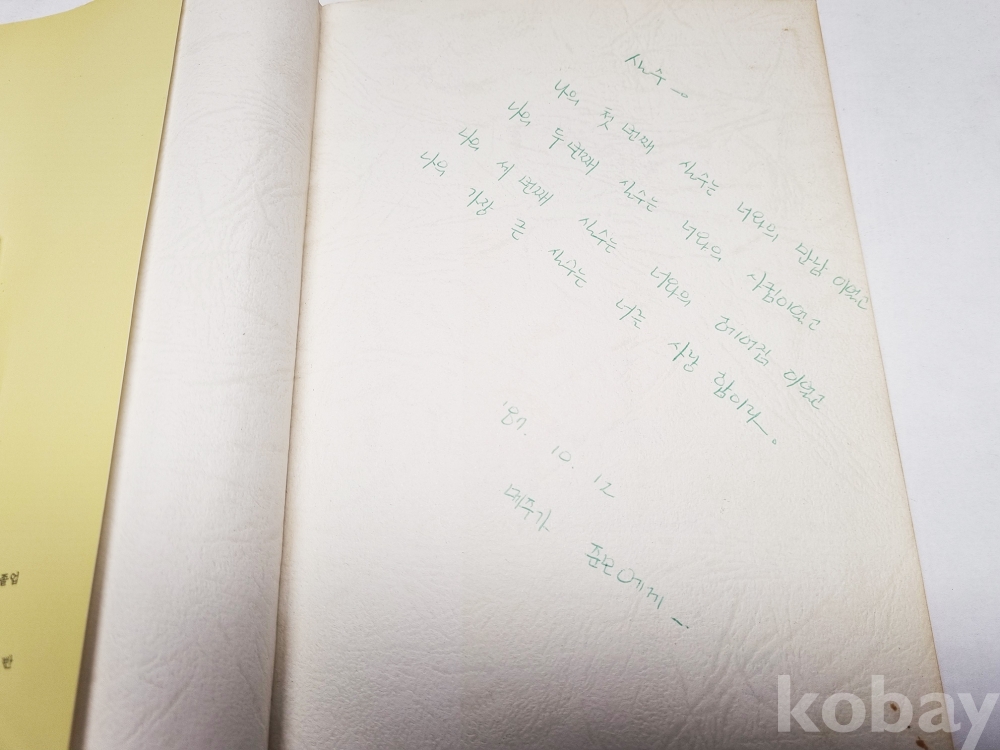 실수 —。
나의 첫 번째 실수는 너와의 만남이었고
나의 두번째 실수는 너와의 사귐이었고
나의 세 번째 실수는 너와의 헤어짐이었고
나의 가장 큰 실수는 너를 사랑함이라.
'87. 10. 12
메주가 준모에게 —.
졸업
란
kobay